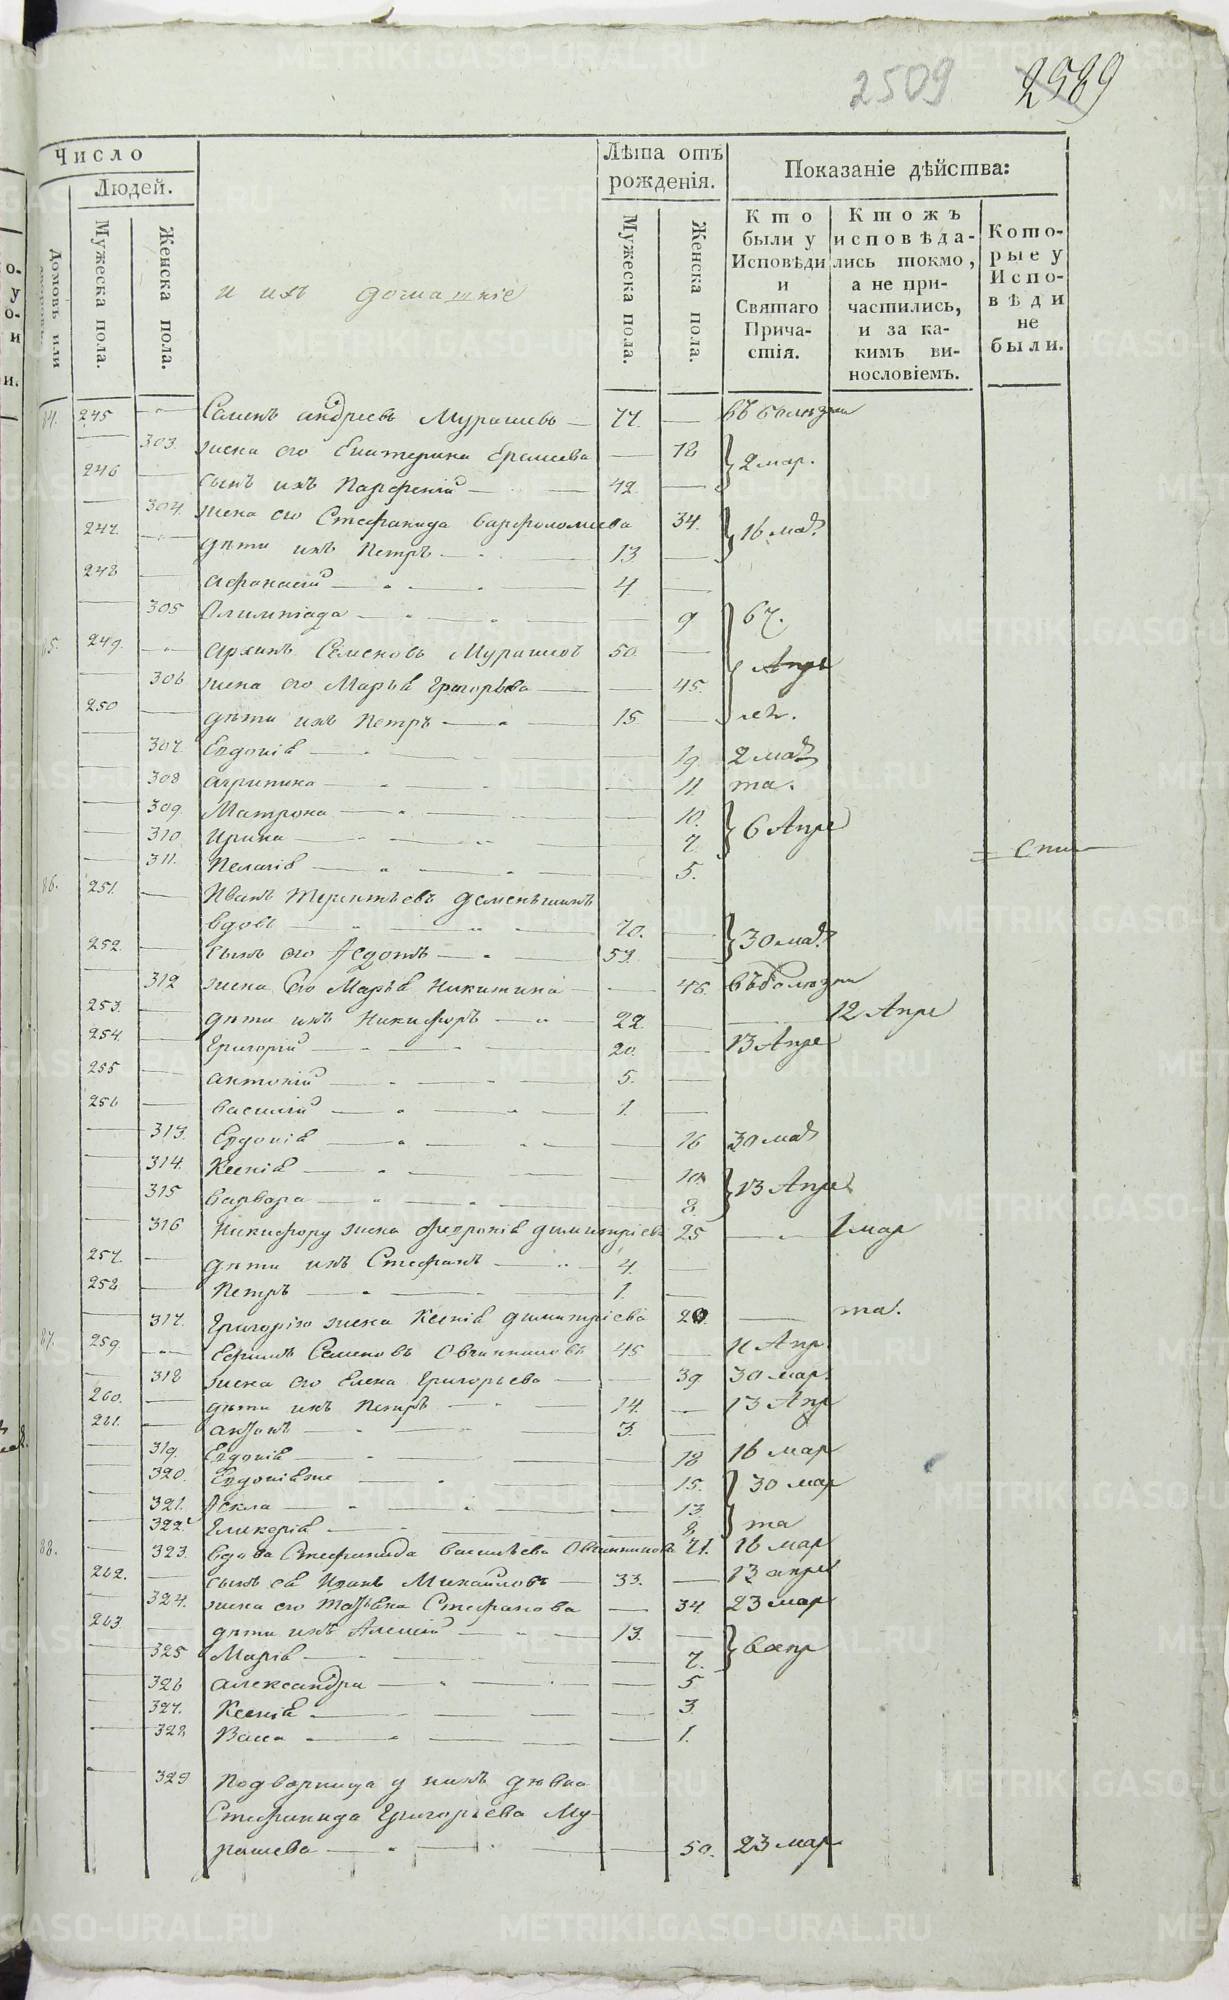 2509 2589
Число
Людей.
Домовъ или
Мужеска пола.
Женска пола.
и ихъ домашніе
Лѣта отъ рожденія.
Мужеска пола.
Женска пола.
Показаніе дѣйства:
Кто были у Исповѣди и Святаго Причастія.
Ктожъ исповѣдались токмо, а не причастились, и за какимъ винословіемъ.
Которые у Исповѣди не были.
84. 245 Семенъ Андреевъ Мурашевъ — 77. — въ болезни
303. жена его Екатерина Ермиева — 78
246 сынъ ихъ Парфеній — 42. — 2 мар.
304. жена его Стефанида Варфоломиева 34.
247. дѣти ихъ Петръ — 13 — 16 мар
248 Афанасій — 4 —
305 Олимпіада — 9 67.
85. 249. Архипъ Семеновъ Мурашевъ 50. —
306 жена его Марья Григорьева — 45. Апре
250 дѣти ихъ Петръ — 15 — ля.
307. Евдокія — 19 2 мар
308 Агрипина — 11 та.
309. Матрона — 10.
310 Ирина — 7. 6 Апре
311. Пелагія — 5.
86. 251. Иванъ Терентьевъ Деменьшинъ
вдовъ — 70. —
252. сынъ его Федотъ — 53. — 30 мар
312 жена его Марья Никитина — 46. въ болезни
253. дѣти ихъ Никифоръ — 22. — 12 Апре
254. Григорій — 20. — 13 Апре
255 Антоній — 5. —
256 Василій — 1. —
313. Евдокія — 16 30 мар
314. Ксенія — 10
315 Варвара — 8. 13 Апре
316 Никифору жена Февронія Димитріева 25 — 1 мар
257. дѣти ихъ Стефанъ — 4 —
258 Петръ — 1. —
317. Григорію жена Ксенія Димитріева 20. — та.
87. 259. Ефимъ Семеновъ Овчинниковъ 45 — 11 Апр
318 жена его Елена Григорьева — 39 30 мар.
260. дѣти ихъ Петръ — 14. — 13 Апр
261. Антонъ — 3. —
319. Евдокія — 18 16 мар
320. Евдокіяже — 15. 30 мар
321. Фекла — 13
322. Гликерія — 8. та
88. 323. вдова Стефанида Васильева Овчинникова 71. 16 мар
262. сынъ ея Иванъ Михайловъ — 33. — 13 апре
324. жена его Татьяна Стефанова — 34 23 мар
263. дѣти ихъ Алексій — 13. —
325 Марія — 7. 6 апр
326 Александра — 5
327. Ксенія — 3
328 Васса — 1.
329 Подворница у нихъ дѣвка
Стефанида Григорьева Му-
рашева — 50. 23 мар